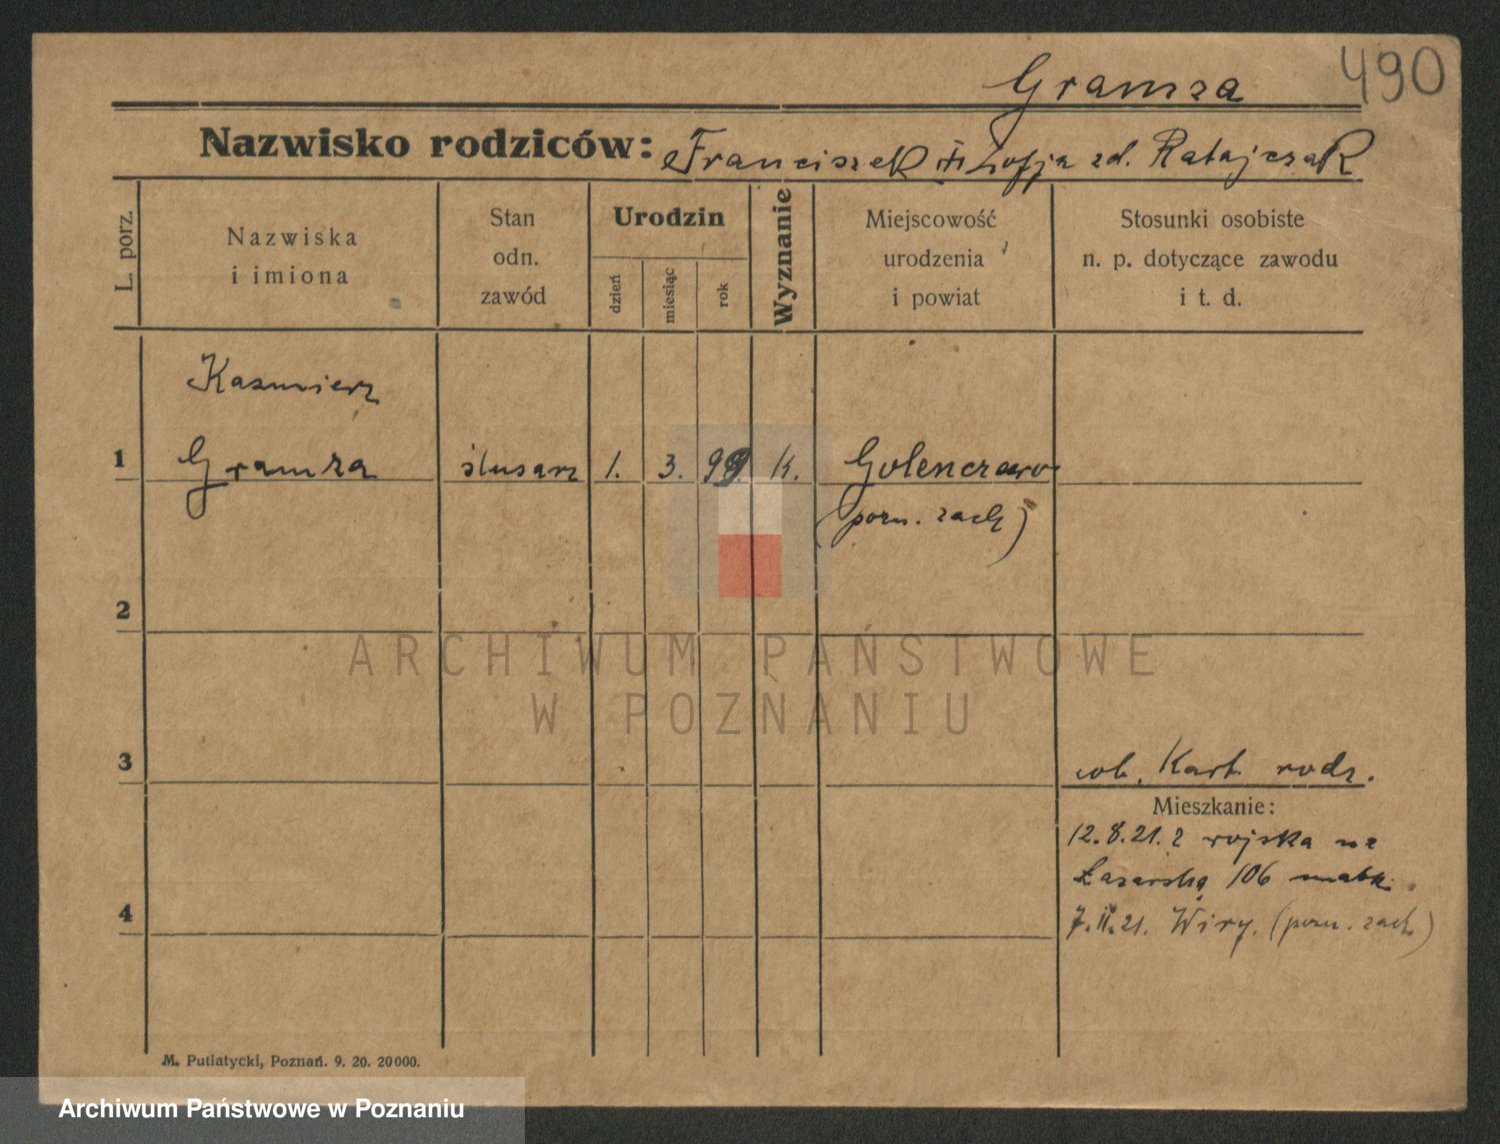 Gramza 490
Nazwisko rodziców: Franciszek i Zofja zd. Ratajczak
L. porz.
Nazwiska
i imiona
Stan
odn.
zawód
Urodzin
dzień
miesiąc
rok
Wyznanie
Miejscowość
urodzenia
i powiat
Stosunki osobiste
n. p. dotyczące zawodu
i t. d.
Kazmierz
1 Gramza ślusarz 1. 3. 99. K. Golenczewo
(pozn. zach)
2
ARCHIWUM PAŃSTWOWE
W POZNANIU
3
ob. Kart. rodz.
Mieszkanie:
12.8.21. z wojska na
Łazarską 106 matk.
4
7.11.21. Wiry. (pozn. zach)
M. Putiatycki, Poznań. 9. 20. 20000.
Archiwum Państwowe w Poznaniu